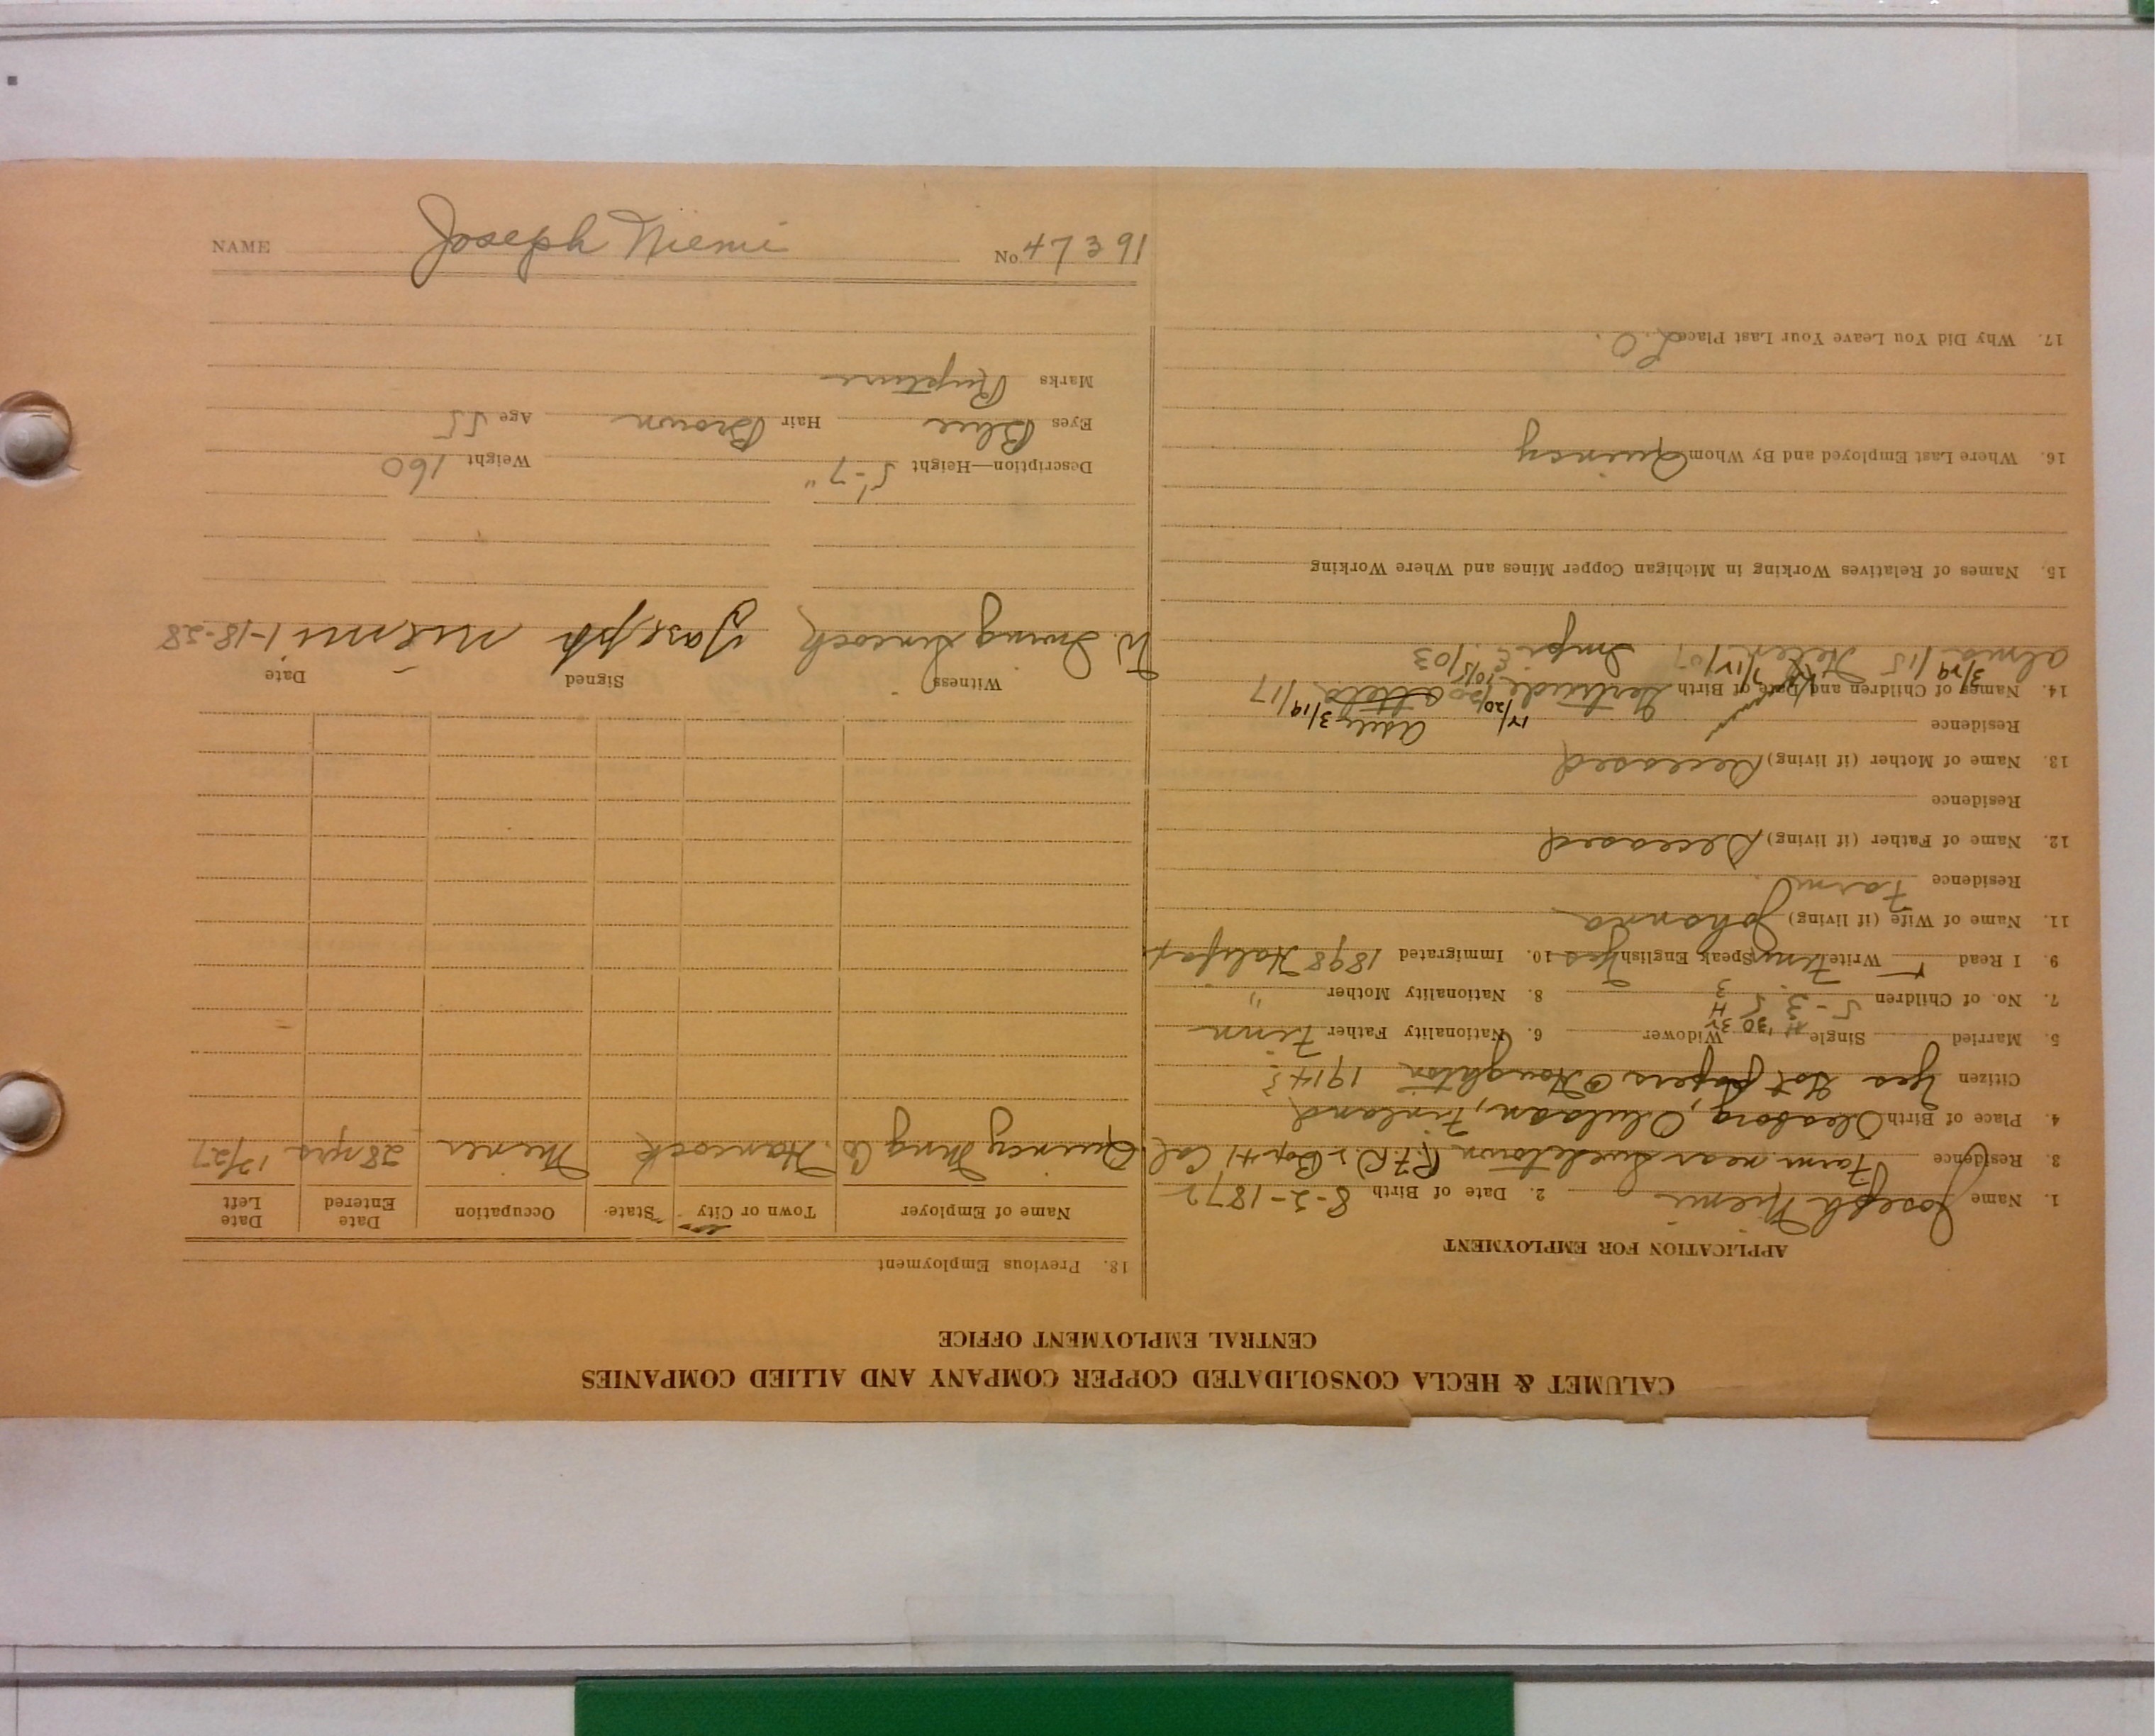 CALUMET & HECLA CONSOLIDATED COPPER COMPANY AND ALLIED COMPANIES
CENTRAL EMPLOYMENT OFFICE
APPLICATION FOR EMPLOYMENT
1. Name Joseph Niemi 2. Date of Birth 8-2-1872
3. Residence Farm near Swedetown (R.F.D. Box 41 Cal
4. Place of Birth Uleaborg, Finland
Citizen Yes Got papers @ Houghton 1914?
5. Married Single Widower 6. Nationality Father Finn
7. No. of Children 5-3 8. Nationality Mother "
9. I Read Write Finn Speak English Yes 10. Immigrated 1898 Halifax
11. Name of Wife (if living) Johanna
Residence Farm
12. Name of Father (if living) Deceased
Residence
13. Name of Mother (if living) Deceased
Residence
14. Names of Children and Date of Birth Gertrude
15. Names of Relatives Working in Michigan Copper Mines and Where Working
16. Where Last Employed and By Whom Quincy
17. Why Did You Leave Your Last Place L.O.
18. Previous Employment
Name of Employer Town or City State Occupation Date Entered Date Left
Quincy Mng Co. Hancock Miner 28 yrs 12/27
Witness Signed Date
W. Irving Joseph Niemi 1-18-28
Description—Height 5'-7" Weight 160
Eyes Blue Hair Brown Age 55
Marks Rupture
NAME Joseph Niemi No. 47391